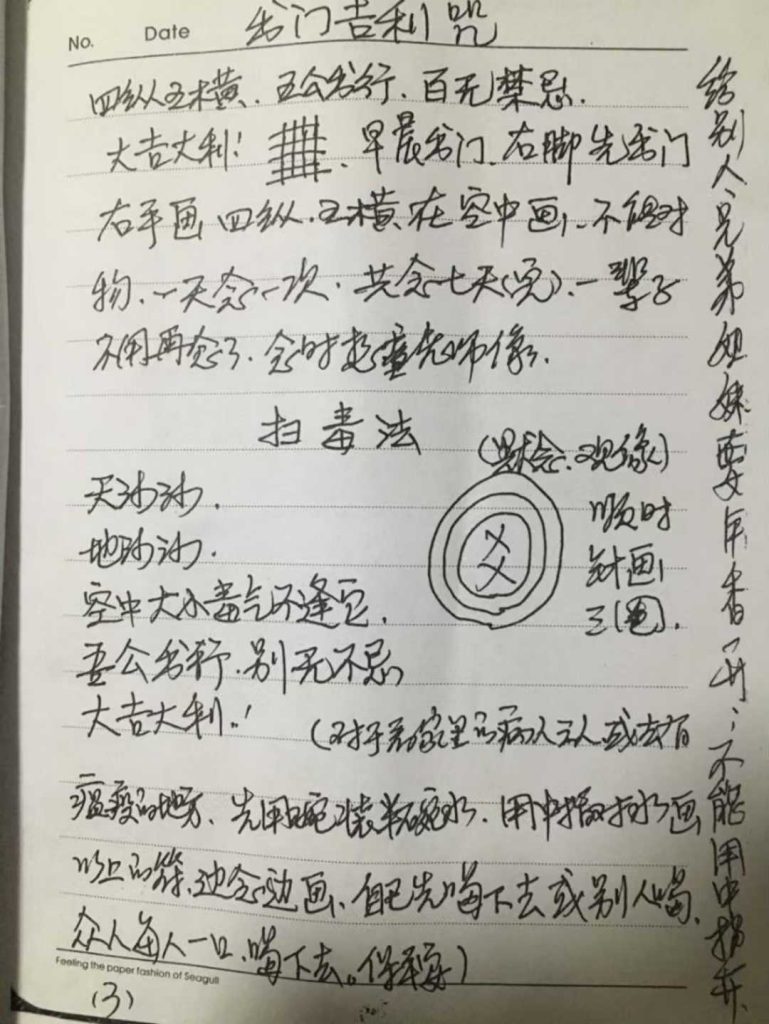 No. Date 出门吉利咒
四纵五横、五公出行、百无禁忌、
大吉大利! 、早晨出门、右脚先出门
右手画四纵、五横、在空中画、不得对
物、一天念一次、共念七天(完)、一辈子
不用再念了、念时想童先师像、
扫毒法
(默念、观像)
天沙沙、
地沙沙、
空中大小毒气不逢它、
吾公出行、别无不忌
大吉大利、!
顺时
针画
三(圈)、
(对于家里的病人 或去有
瘟疫的地方、先用碗装半碗水、用中指对水画
以上的符、边念边画、自己先喝下去或别人喝、
众人每人一口、喝下去。保平安)
给别人、兄弟姐妹要用香开、不能用中指开、
Feeling the paper fashion of Seagull
(3)